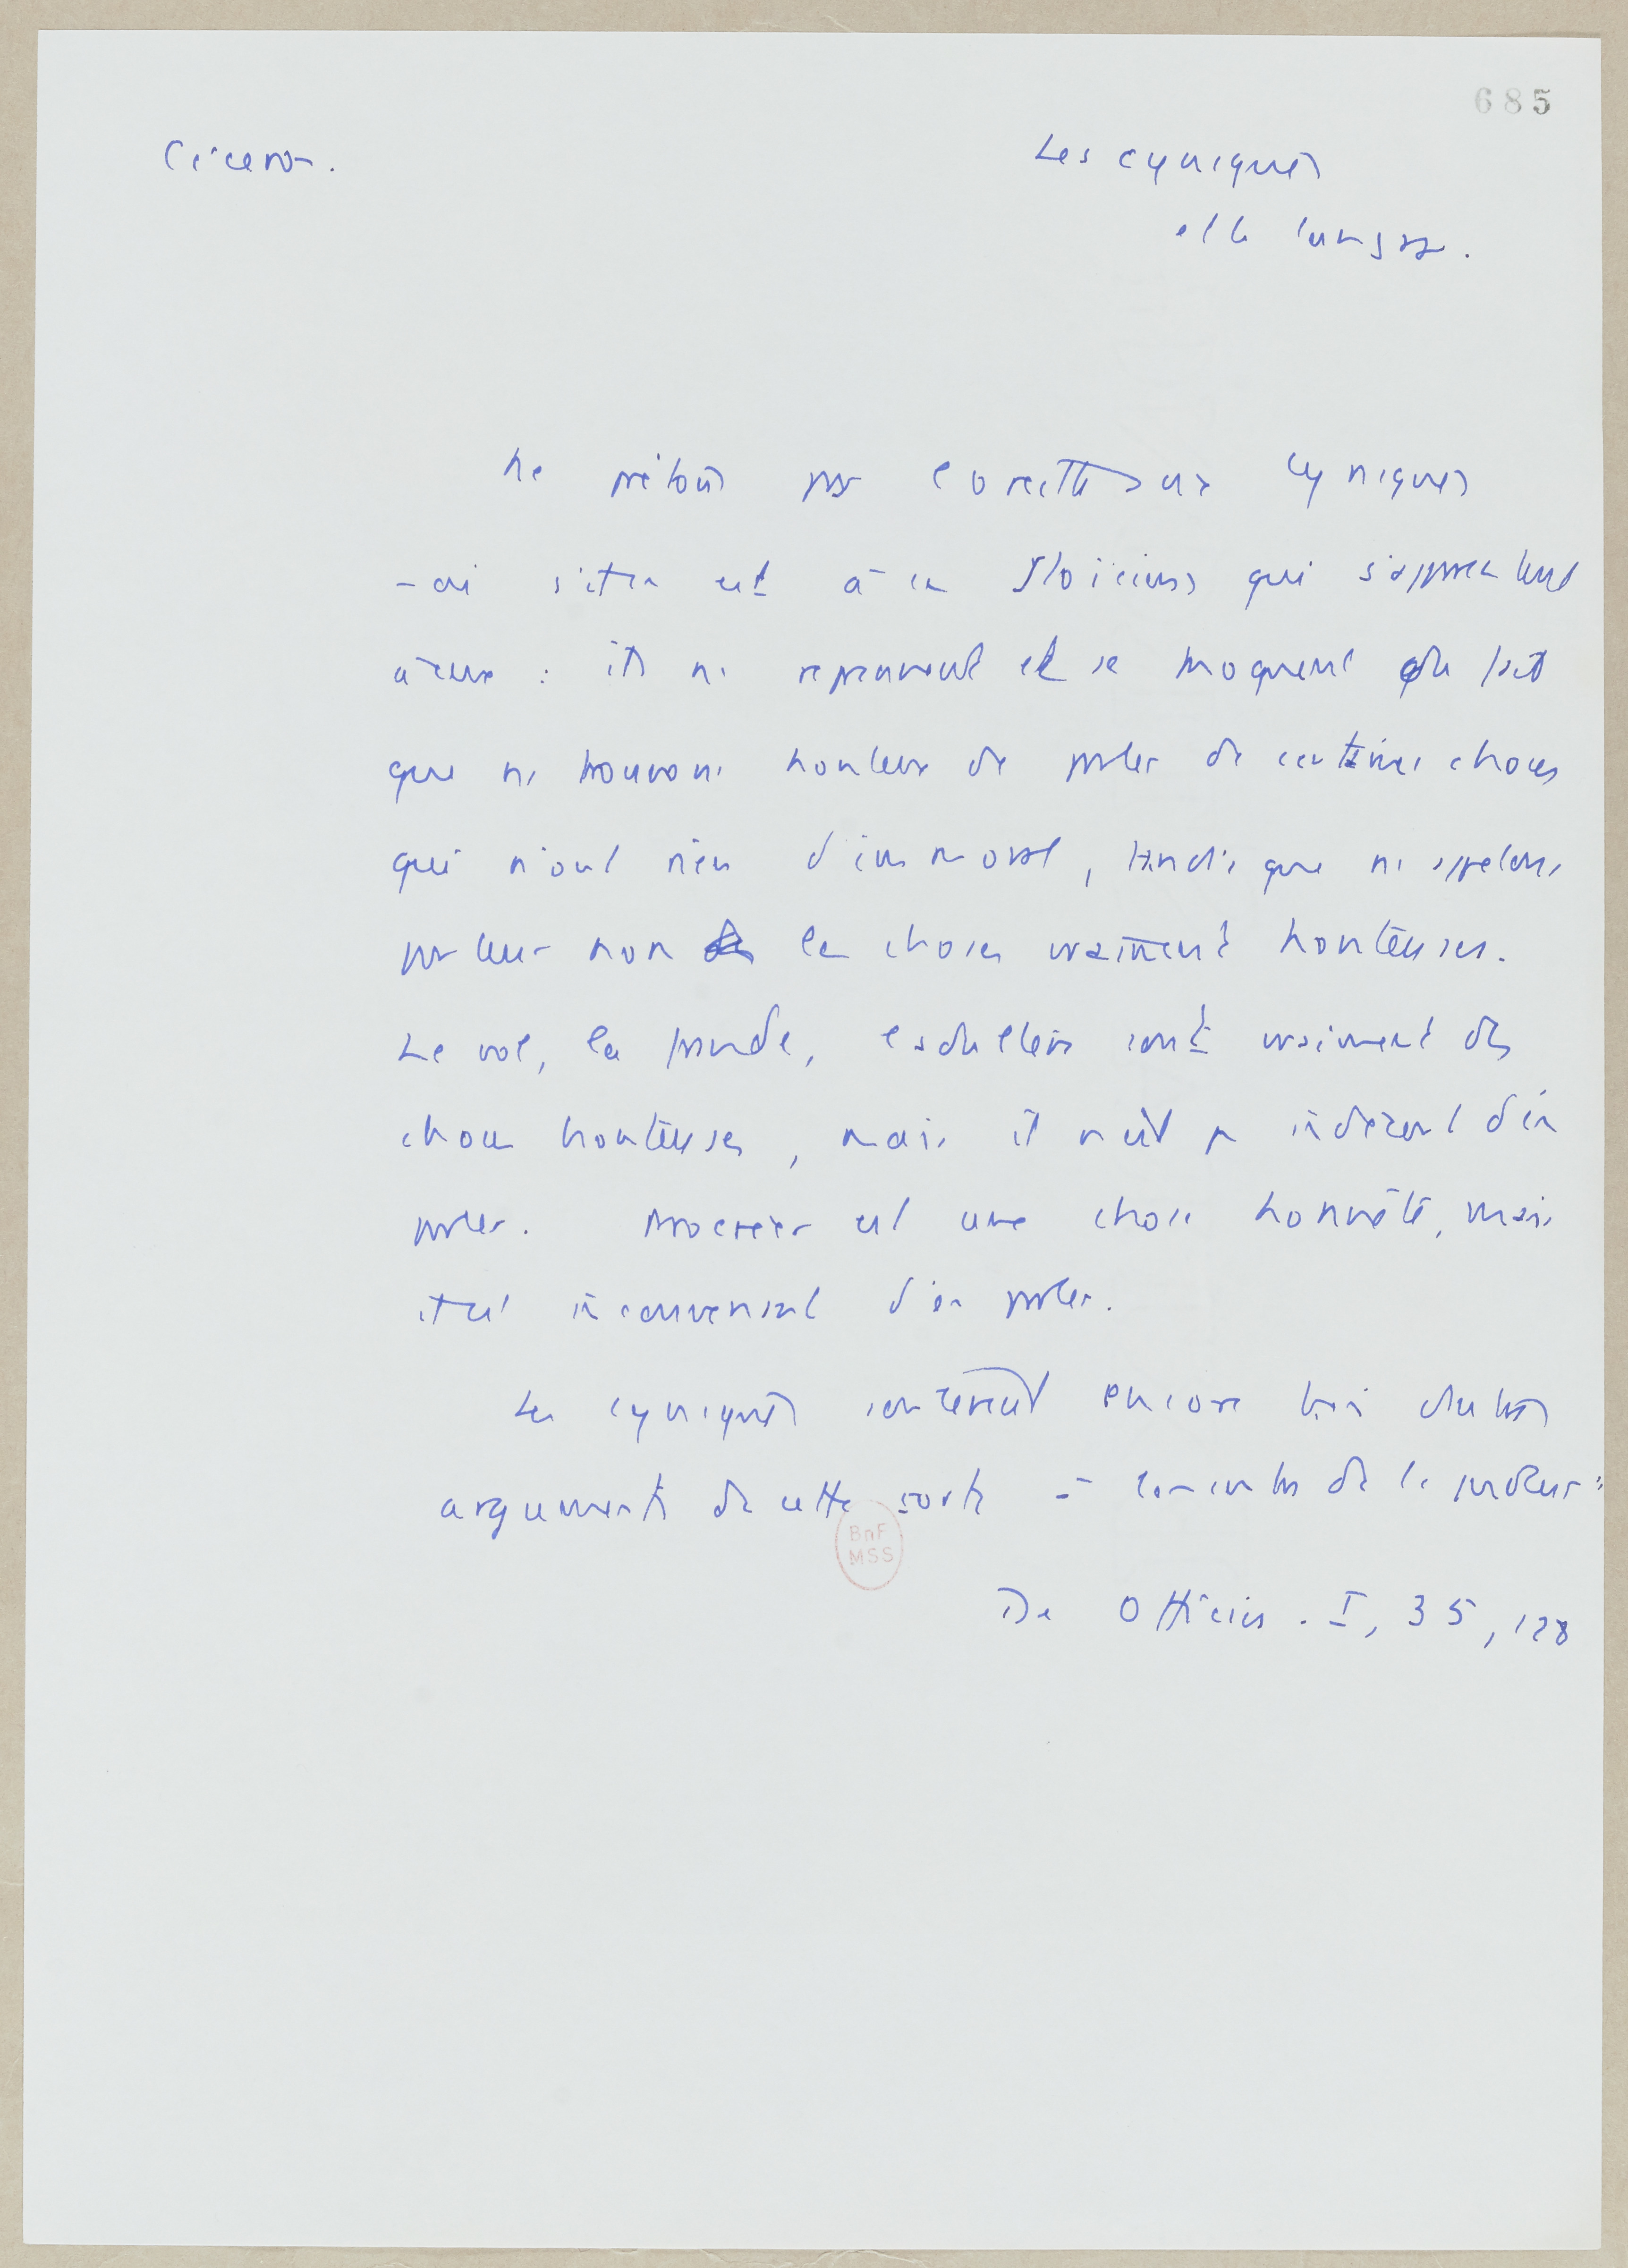 685
Ciceron.
Les cyniques
et le langage.
Ne prêtons pas l'oreille aux cyniques
ni s'il en est à ces Stoïciens qui s'apparentent
à eux : ils ns reprennent et se moquent du fait
que ns trouvons honteux de parler de certaines choses
qui n'ont rien d'immoral, tandis que ns appelons
par leur nom les choses vraiment honteuses.
Le vol, la fraude, l'adultère sont vraiment des
choses honteuses, mais il n'est pas indécent d'en
parler. Procréer est une chose honnête, mais
il est inconvenant d'en parler.
Les cyniques encore d'autres
arguments de cette sorte à l'encontre de la pudeur
BnF
MSS
De Officiis. I, 35, 128